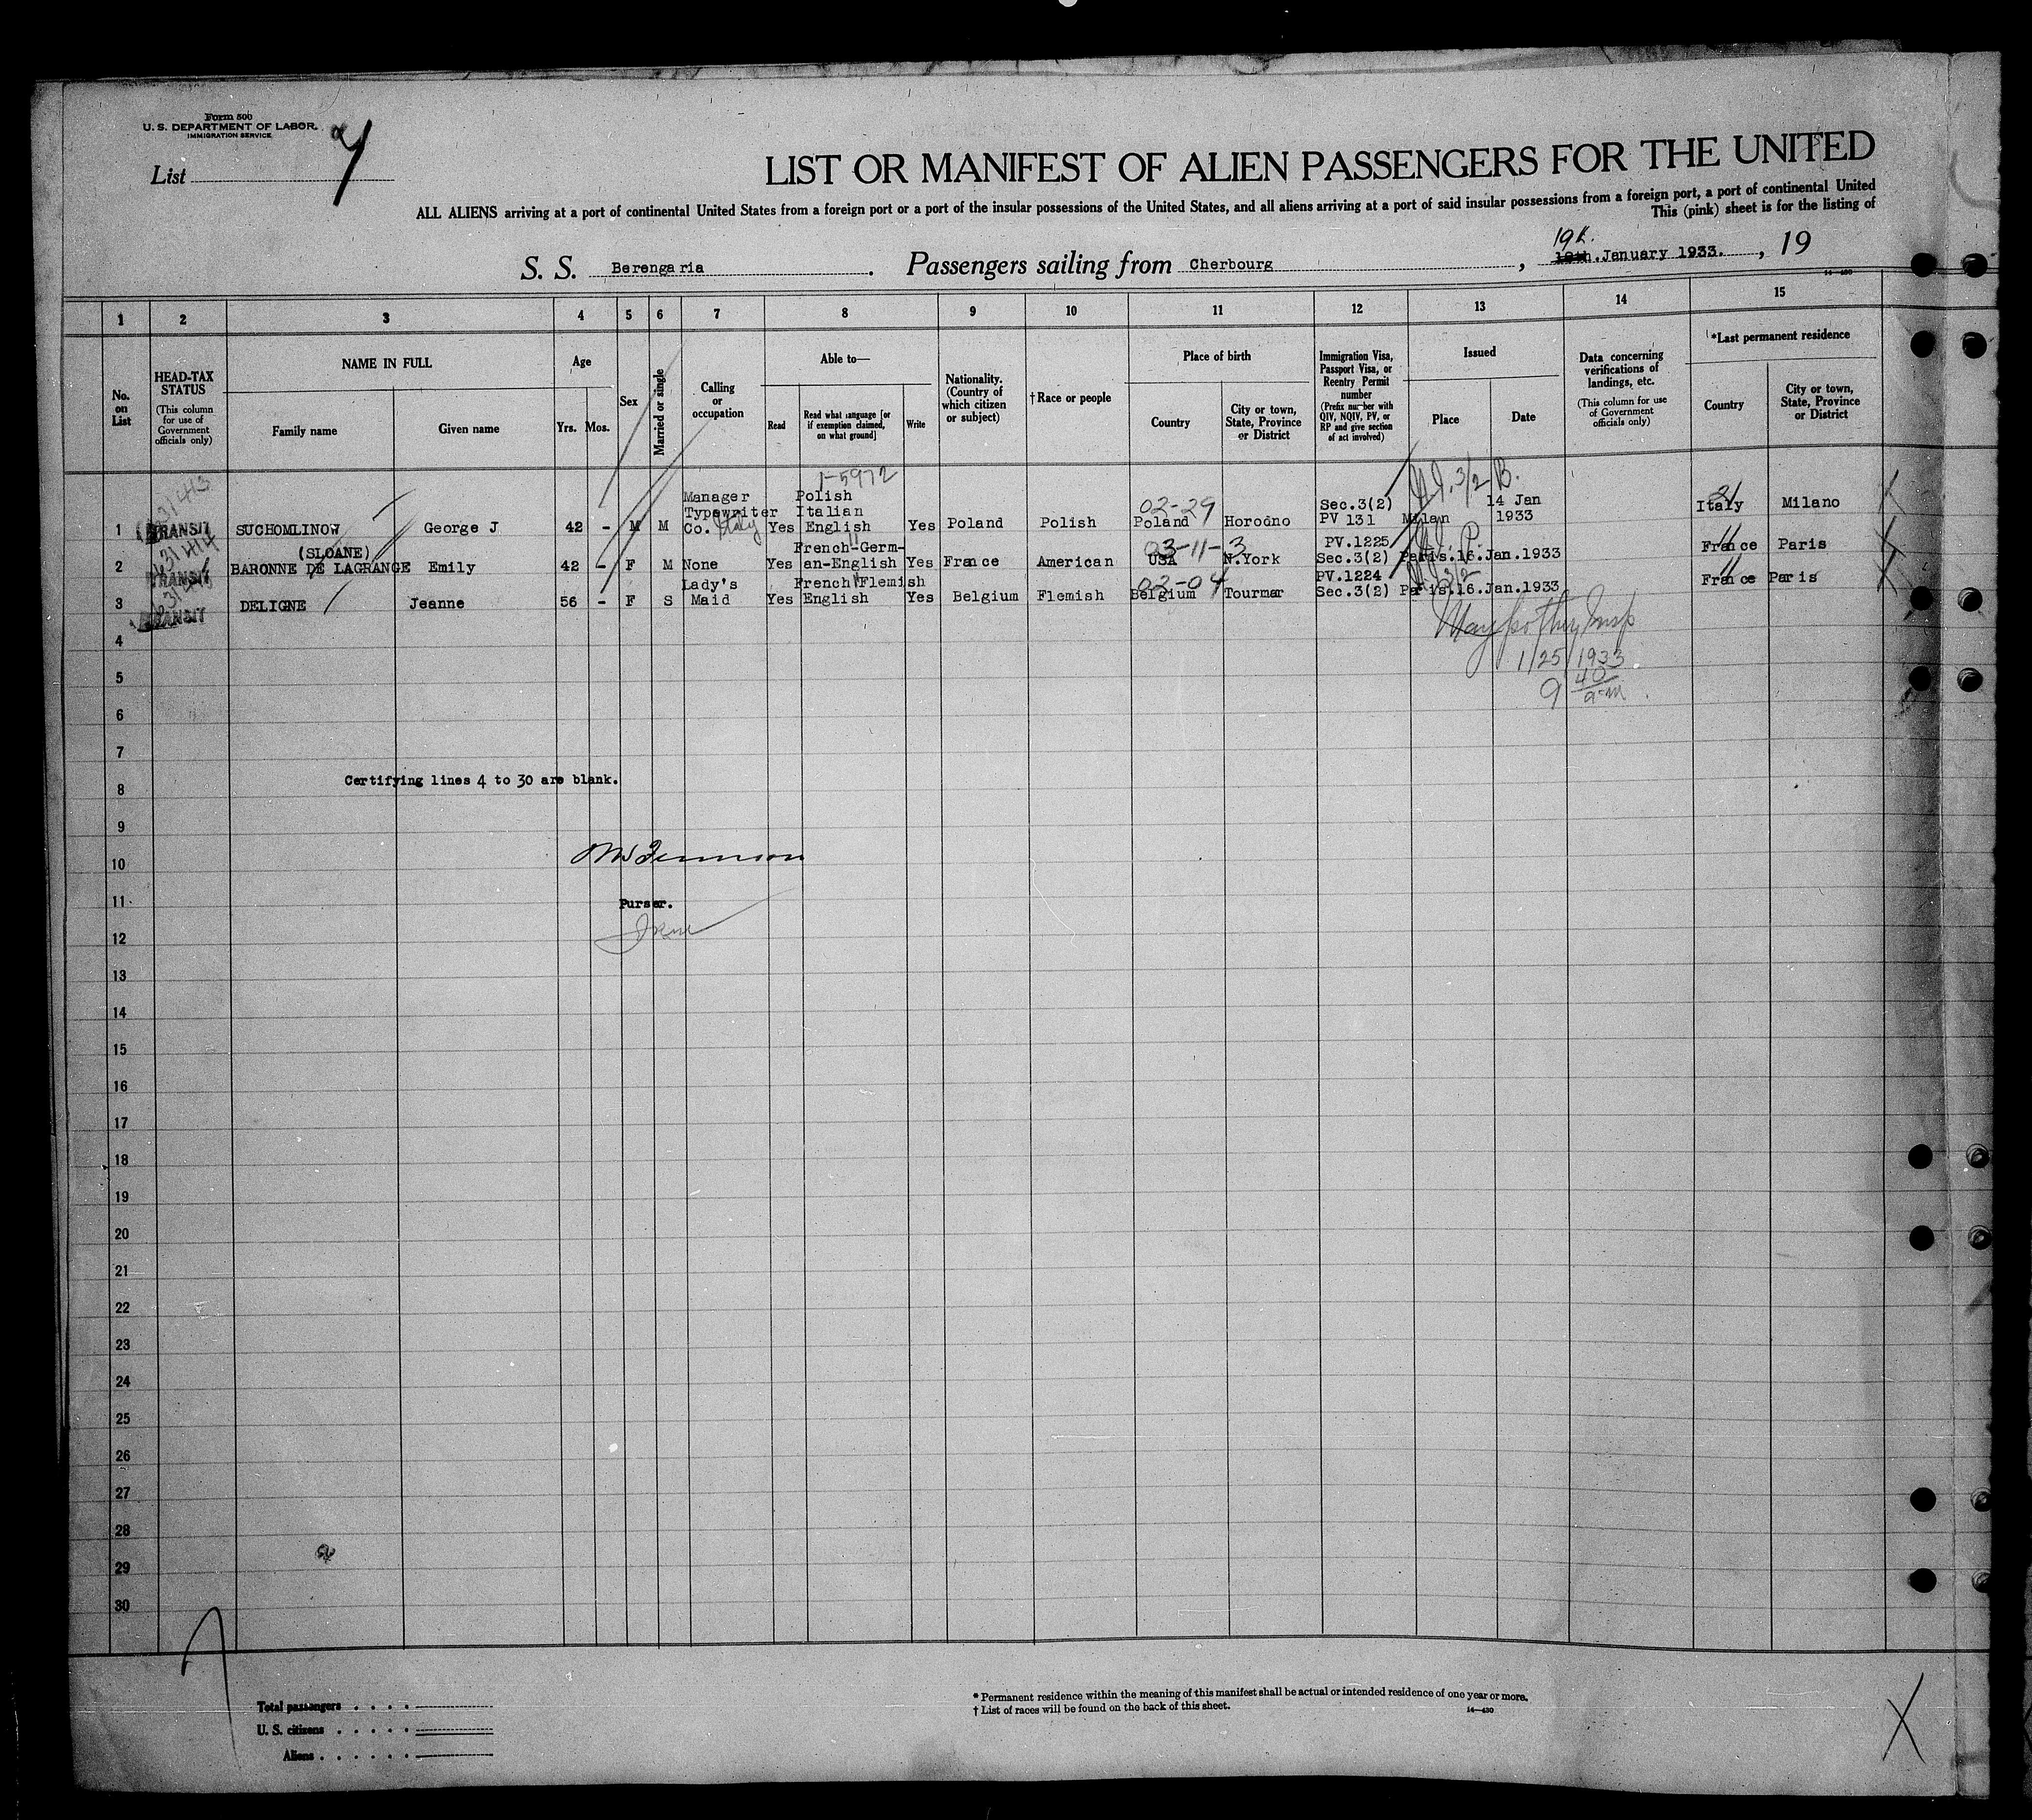 Form 500
U. S. DEPARTMENT OF LABOR
IMMIGRATION SERVICE
List
LIST OR MANIFEST OF ALIEN PASSENGERS FOR THE UNITED
ALL ALIENS arriving at a port of continental United States from a foreign port or a port of the insular possessions of the United States, and all aliens arriving at a port of said insular possessions from a foreign port, a port of continental United
This (pink) sheet is for the listing of
19th.
S. S. Berengaria . Passengers sailing from Cherbourg , 18th.January 1933. , 19
14-430
1 2 3 4 5 6 7 8 9 10 11 12 13 14 15
No. on List
HEAD-TAX STATUS
(This column for use of Government officials only)
NAME IN FULL
Family name
Given name
Age
Yrs. Mos.
Sex
Married or single
Calling or occupation
Able to—
Read
Read what language [or if exemption claimed, on what ground]
Write
Nationality. (Country of which citizen or subject)
†Race or people
Place of birth
Country
City or town, State, Province or District
Immigration Visa, Passport Visa, or Reentry Permit number
(Prefix number with QIV, NQIV, PV, or RP and give section of act involved)
Issued
Place
Date
Data concerning verifications of landings, etc.
(This column for use of Government officials only)
*Last permanent residence
Country
City or town, State, Province or District
1-5972
Manager Polish
Typewriter Italian 02-29 Sec.3(2) 14 Jan
1 TRANSIT SUCHOMLINOW George J 42 - M M Co. Italy Yes English Yes Poland Polish Poland Horodno PV 131 Milan 1933 Italy Milano
(SLOANE) French-Germ- 03-11-3 PV.1225
2 TRANSIT BARONNE DE LAGRANGE Emily 42 - F M None Yes an-English Yes France American USA N.York Sec.3(2) Paris.16.Jan.1933 France Paris
Lady's French Flemish 02-04 PV.1224
3 TRANSIT DELIGNE Jeanne 56 - F S Maid Yes English Yes Belgium Flemish Belgium Tournar Sec.3(2) Paris.16.Jan.1933 France Paris
4
1/25/1933
5
9 40 am
6
7
Certifying lines 4 to 30 are blank.
8
9
10
11
Purser.
12
13
14
15
16
17
18
19
20
21
22
23
24
25
26
27
28
29
30
Total passengers
U. S. citizens
Aliens
* Permanent residence within the meaning of this manifest shall be actual or intended residence of one year or more.
† List of races will be found on the back of this sheet.
14-430